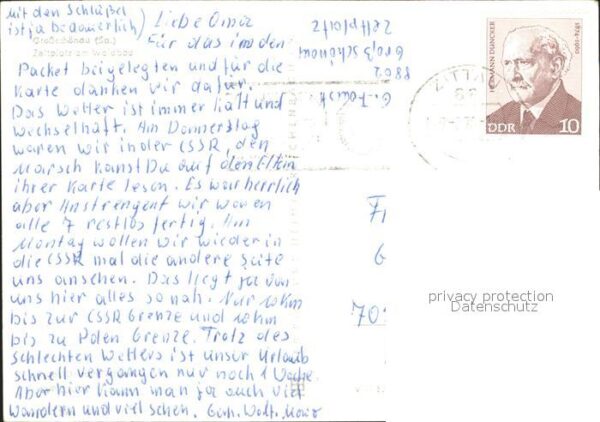 mit den Schlüßel
ist ja bedauerlich)
Großschönau (Sa.)
Zeltplatz am Waldbad
Liebe Oma
Für das in den
Packet beigelegten und für die
Karte danken wir dafür.
Das Wetter ist immer kalt und
wechselhaft. Am Donnerstag
waren wir in der CSSR, den
Marsch kanst Du auf den Eltern
ihrer Karte lesen. Es war herrlich
aber Anstrengent wir waren
alle 7 restlos fertig. Am
Montag wollen wir wieder in
die CSSR mal die andere Seite
uns ansehen. Das liegt ja von
uns hier alles so nah. Nur 10 km
bis zur CSSR Grenze und 10 km
bis zu Polen Grenze. Trotz des
schlechten Wetters ist unsir Urlaub
schnell vergangen nur noch 1 Woche.
Aber hier kann man ja auch viel
Wandern und viel sehen.
8802
Großschönau
Zeltplatz
HERMANN DUNCKER
1874-1960
DDR 10
701
privacy protection
Datenschutz